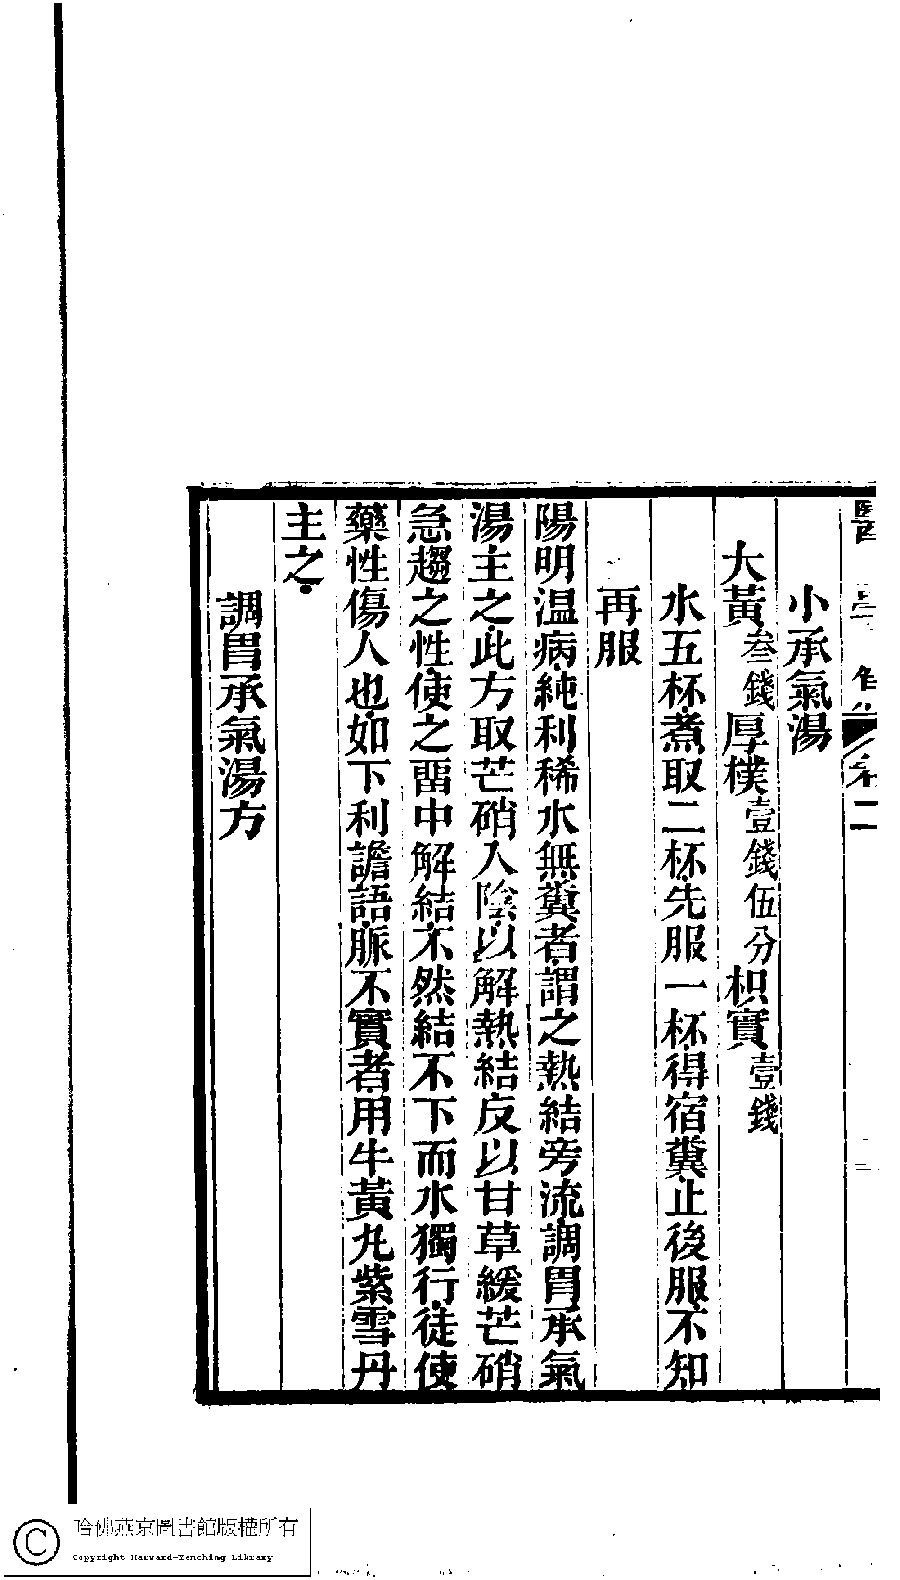 小承氣湯
大黃叁錢厚樸壹錢伍分枳實壹錢
水五杯煮取二杯先服一杯得宿糞止後服不知
再服
陽明温病純利稀水無糞者謂之熱結旁流調胃承氣
湯主之此方取芒硝入陰以解熱結反以甘草緩芒硝
急趨之性使之畱中解結不然結不下而水獨行徒使
藥性傷人也如下利譫語脈不實者用牛黃丸紫雪丹
主之
調胃承氣湯方
哈佛燕京圖書館版權所有
Copyright Harvard-Yenching Library